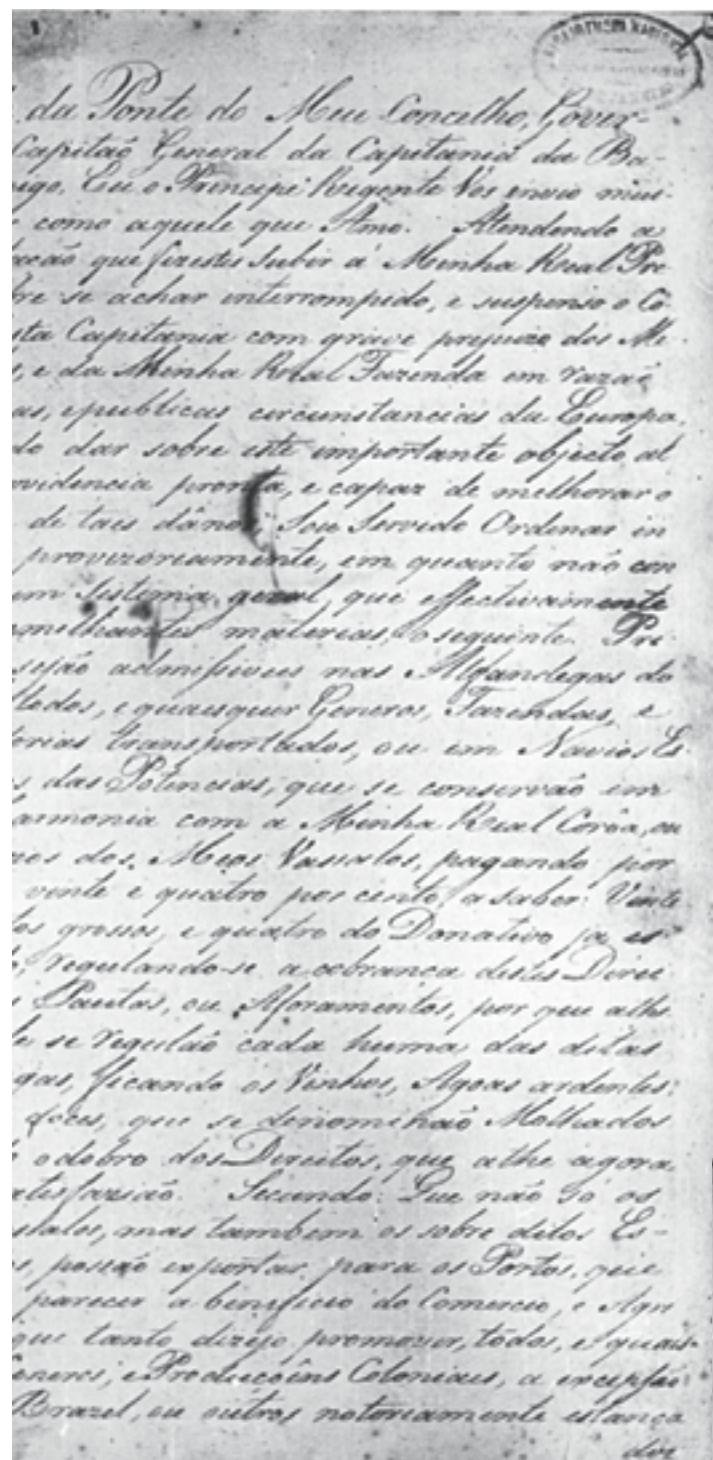 1
da Ponte do Meu Concelho, Gover-
Capitaõ General da Capitania da Ba-
igo. Eu o Principe Regente Vos envio mui-
e como aquele que Amo. Atendendo a
tacaõ que fizestes subir a' Minha Real Pre-
bre se achar interrompido, e suspenso o Co-
sta Capitania com grave prejuizo dos Me-
s, e da Minha Real Fazenda em razaõ
as, e publicas circunstancias da Europa,
do dar sobre este importante objecto al
ovidencia pronta, e capaz de melhorar o
de taes dânos: Sou Servido Ordenar in
provizoriamente, em quanto naõ con
um Sistema geral, que effectivamente
emelhantes materias, o seguinte. Pri-
sejaõ admissiveis nas Alfandegas do
todos, e quaesquer Generos, Fazendas, e
orias transportados, ou em Navios Es-
s das Potencias, que se conservaõ em
armonia com a Minha Real Corôa, ou
ios dos Meos Vassalos, pagando por
vinte e quatro por cento; a saber: Vinte
tos grossos, e quatro do Donativo ja es-
o, regulando-se a cobranca destes Direi-
s Pautas, ou Aforamentos, por que athe
le se regulaõ cada huma das ditas
gas, ficando os Vinhos, Agoas ardentes,
doces, que se denominaõ Molhados
o dobro dos Direitos, que athe agora
atisfaziaõ. Secundo: Que naõ só os
ssalos, mas tambem os sobre ditos Es-
s, possaõ exportar para os Portos, que
parecer a beneficio do Comercio, e Agri
que tanto dezejo promover, todos, e quais-
Generos, e Produccoins Coloniaes, a excepsaõ
Brazil, ou outros notoriamente estanca
dos